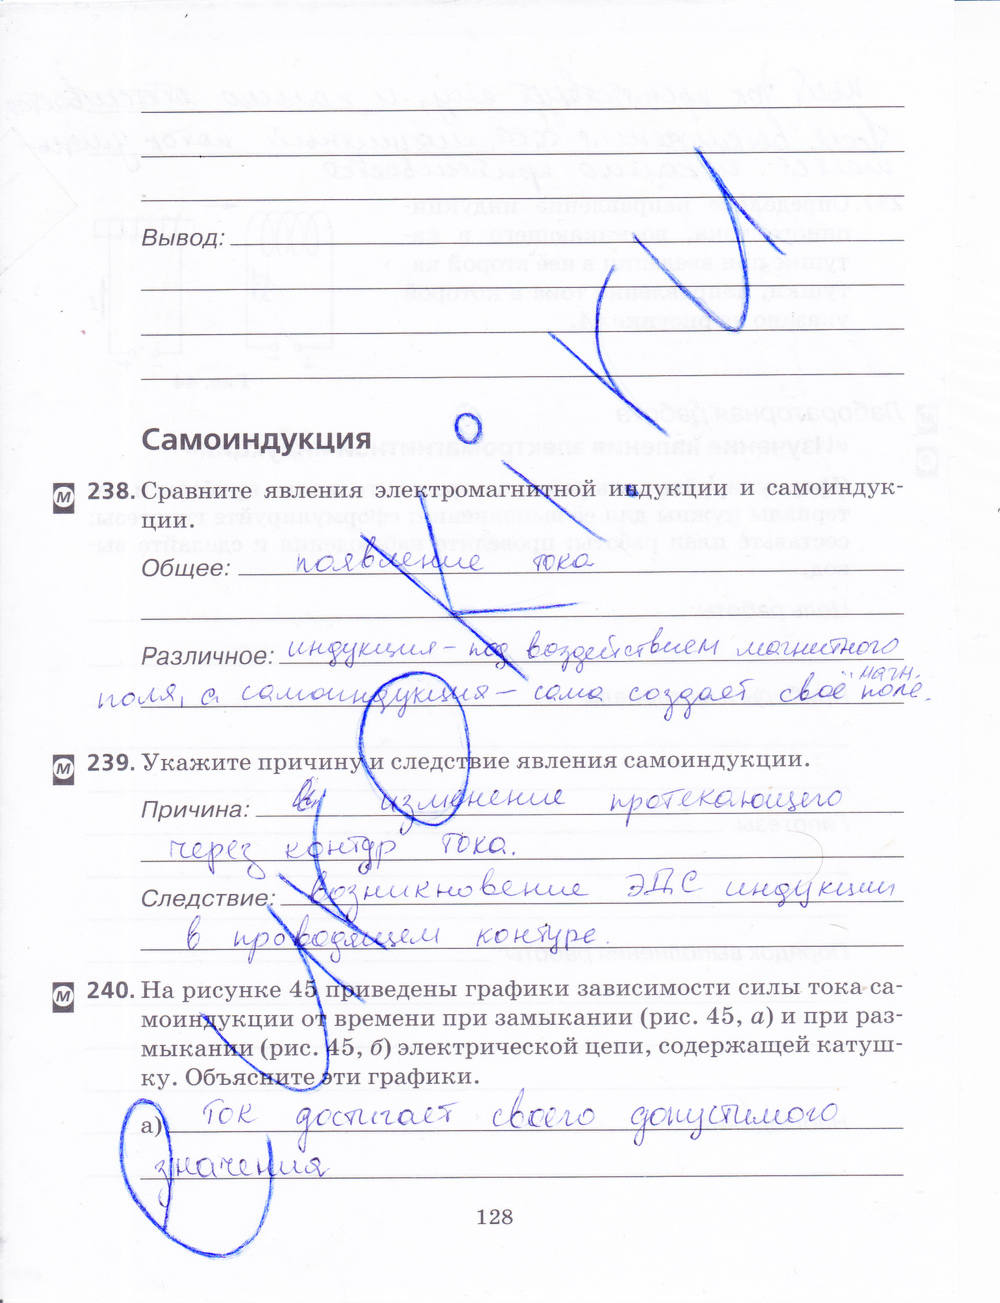 Вывод:
Самоиндукция
М 238. Сравните явления электромагнитной индукции и самоиндук-
ции.
Общее: появление тока
Различное: индукция – под воздействием магнитного
магн.
поля, а самоиндукция – сама создает своё поле.
М 239. Укажите причину и следствие явления самоиндукции.
Причина: изменение протекающего
через контур тока.
Следствие: возникновение ЭДС индукции
в проводящем контуре.
М 240. На рисунке 45 приведены графики зависимости силы тока са-
моиндукции от времени при замыкании (рис. 45, а) и при раз-
мыкании (рис. 45, б) электрической цепи, содержащей катуш-
ку. Объясните эти графики.
а) Ток достигает своего допустимого
значения
128